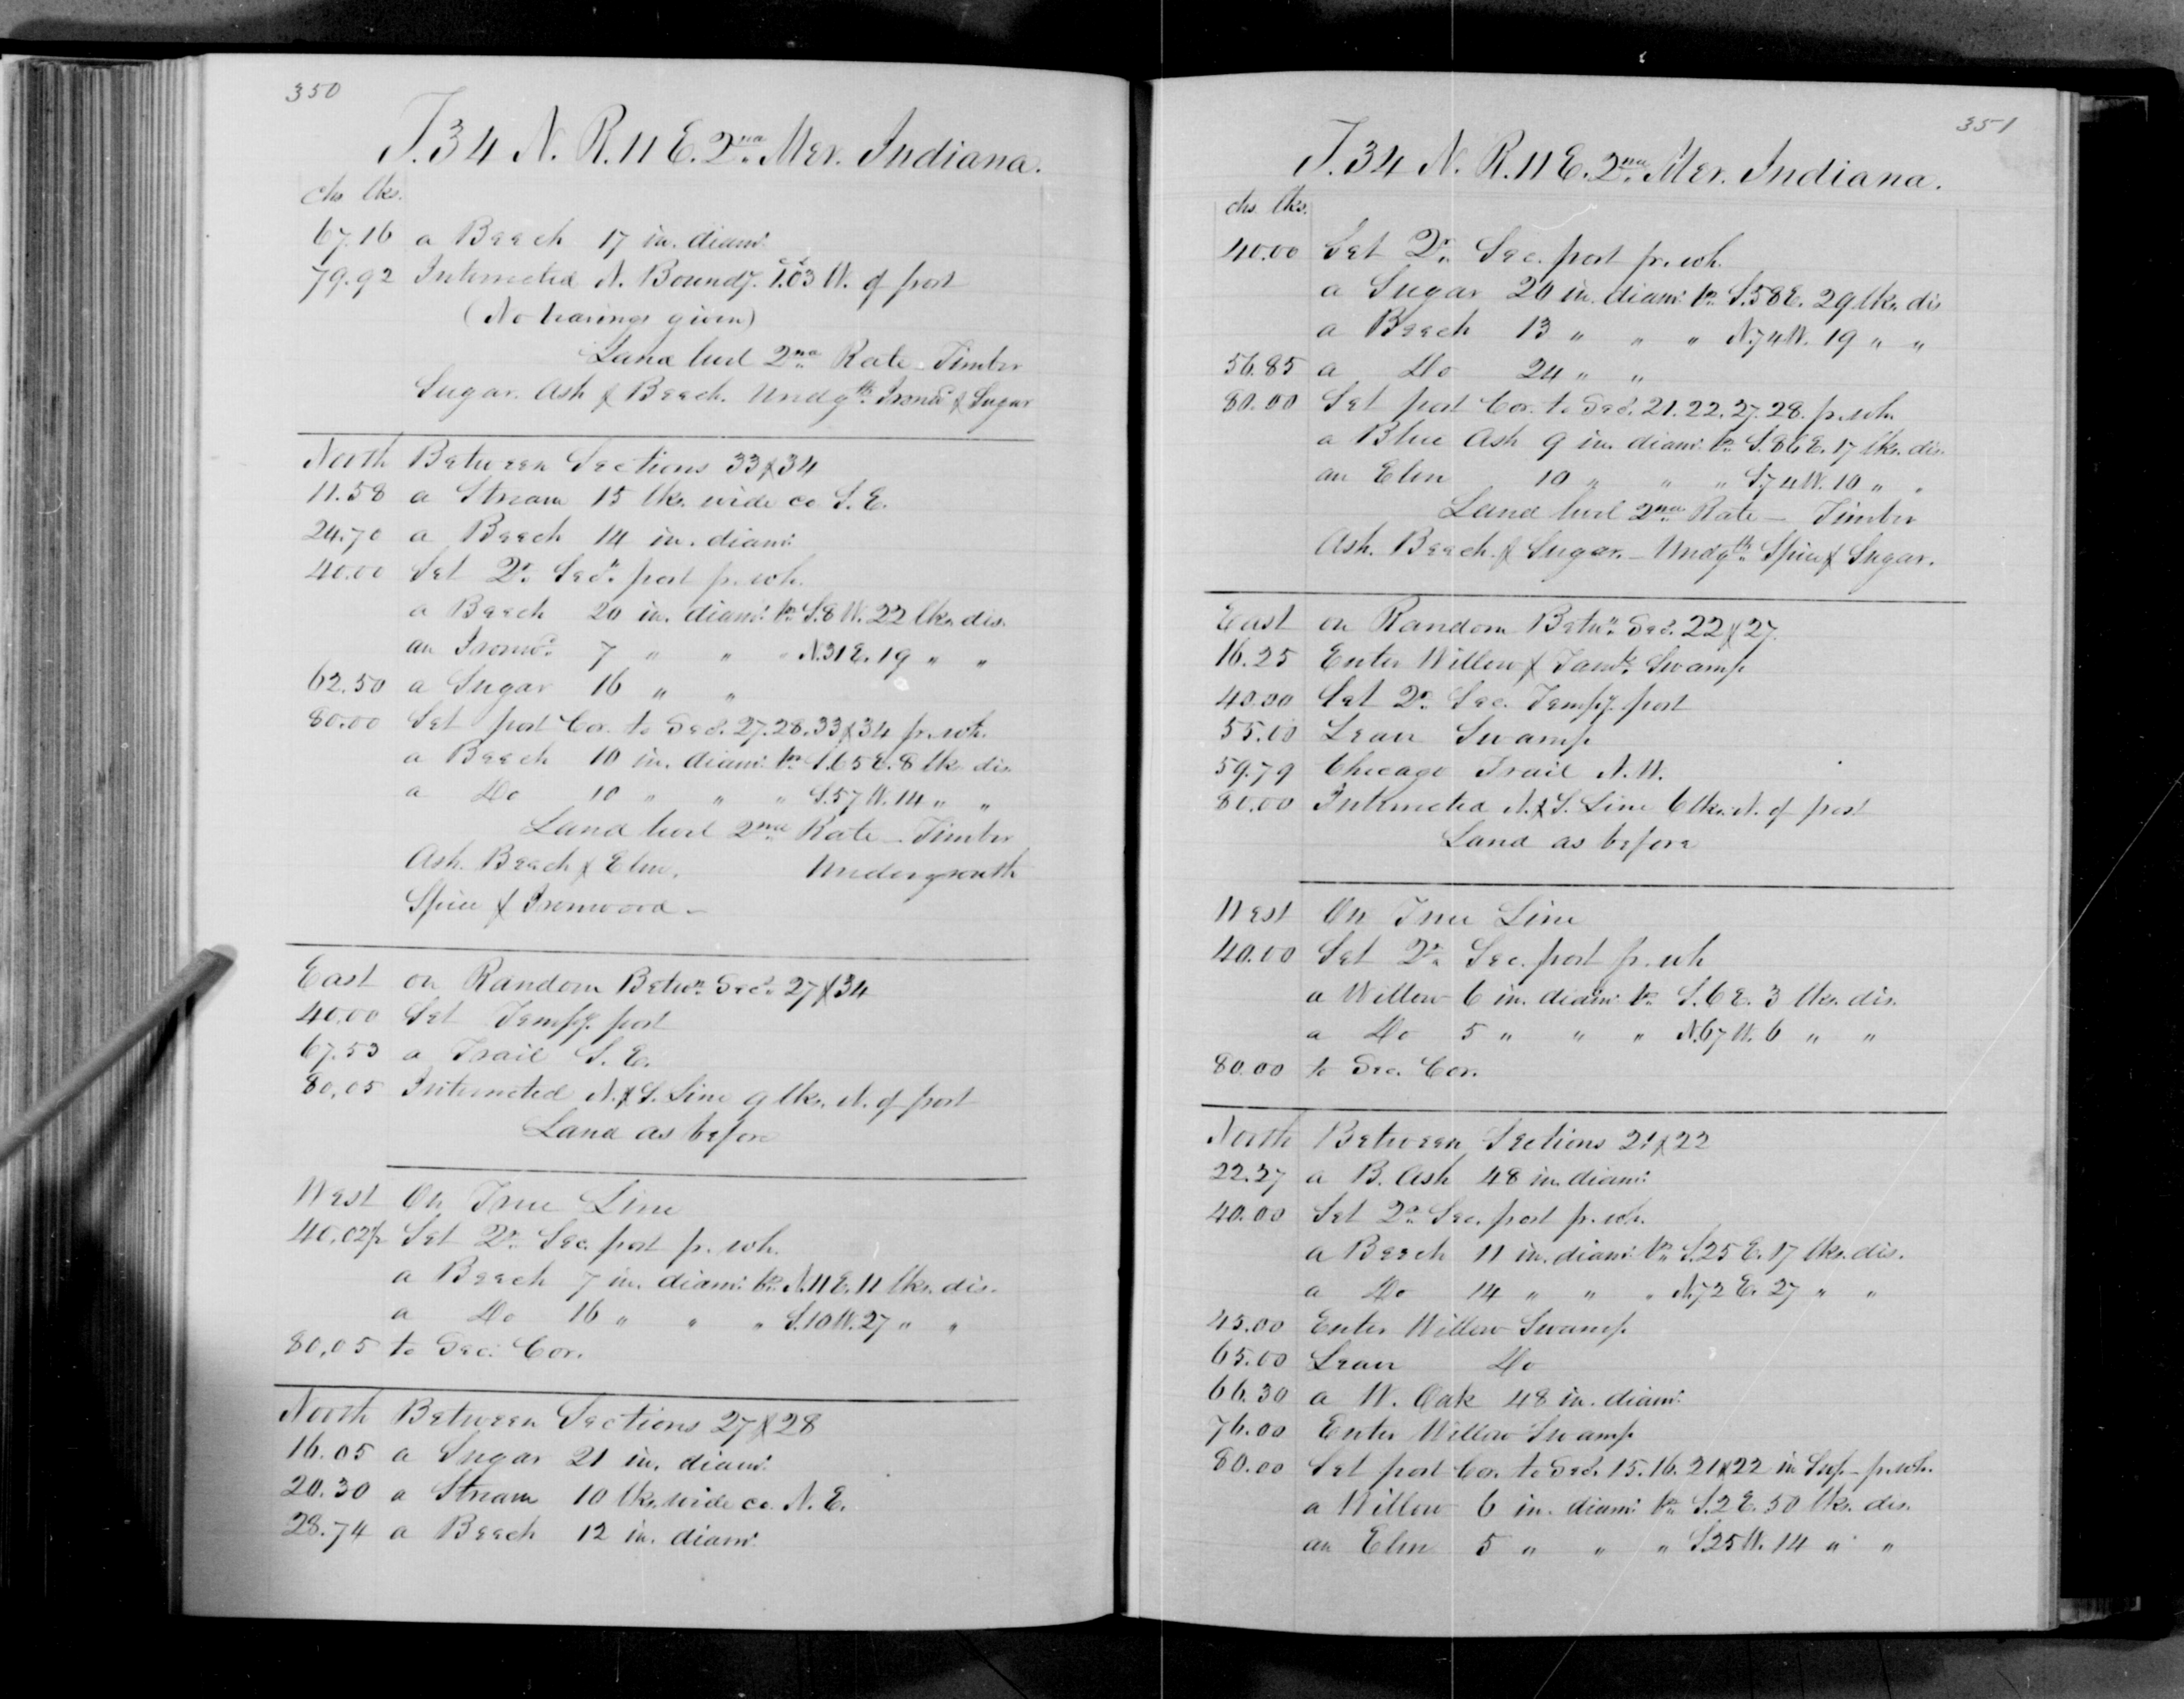 350
T. 34 N. R. 11 E. 2nd Mer. Indiana.
chs. lks.
67.16 a Beech 17 in. diam.
79.92 Intersected N. Boundy. 1.03 W. of post
(No bearings given)
Land level 2nd Rate. Timber
Sugar. Ash & Beech. Undgth. Ironwd. & Sugar
North Between Sections 33 & 34
11.58 a Stream 15 lks. wide co. S.E.
24.70 a Beech 14 in. diam.
40.00 Set Qr. Secn. post fr. wh.
a Beech 20 in. diam. brs. S. 8 W. 22 lks. dis.
an Ironwd. 7 " " " N. 31 E. 19 " "
62.50 a Sugar 16 " "
80.00 Set post Cor. to Secs. 27. 28. 33 & 34 fr. wh.
a Beech 10 in. diam. brs. S. 65 E. 8 lks. dis.
a Do 10 " " " S. 57 W. 14 " "
Land level 2nd Rate - Timber
Ash. Beech & Elm. Undergrowth
Spice & Ironwood -
East on Random Betwn. Secs. 27 & 34
40.00 Set Tempy. post
67.53 a Trail S.E.
80.05 Intersected N. & S. Line 9 lks. N. of post
Land as before
West On True Line
40.02½ Set Qr. Sec. post fr. wh.
a Beech 7 in. diam. brs. N. 11 E. 11 lks. dis.
a Do 16 " " " S. 10 W. 27 " "
80.05 to Sec. Cor.
North Between Sections 27 & 28
16.05 a Sugar 21 in. diam.
20.30 a Stream 10 lks. wide co. N.E.
28.74 a Beech 12 in. diam.
351
T. 34 N. R. 11 E. 2nd Mer. Indiana.
chs. lks.
40.00 Set Qr. Sec. post fr. wh.
a Sugar 20 in. diam. brs. S. 58 E. 29 lks. dis
a Beech 13 " " " N. 74 W. 19 " "
56.85 a Do 24 " "
80.00 Set post Cor. to Secs. 21. 22. 27. 28. fr. wh.
a Blue Ash 9 in. diam. brs. S. 86 E. 17 lks. dis.
an Elm 10 " " " S. 74 W. 10 " "
Land level 2nd Rate - Timber
Ash. Beech. & Sugar. - Undgth. Spice & Sugar.
East on Random Betwn. Secs. 22 & 27.
16.25 Enter Willow & Tamk. Swamp
40.00 Set Qr. Sec. Tempy. post
55.00 Leave Swamp
59.79 Chicago Trail N.W.
80.00 Intersected N. & S. Line 6 lks. N. of post
Land as before
West On True Line
40.00 Set Qr. Sec. post fr. wh
a Willow 6 in. diam. brs. S. 6 E. 3 lks. dis.
a Do 5 " " " N. 67 W. 6 " "
80.00 to Sec. Cor.
North Between Sections 21 & 22
22.27 a B. Ash 48 in. diam.
40.00 Set Qr. Sec. post fr. wh.
a Beech 11 in. diam. brs. S. 25 E. 17 lks. dis.
a Do 14 " " " N. 72 E. 27 " "
45.00 Enter Willow Swamp
65.00 Leave Do
66.30 a W. Oak 48 in. diam.
76.00 Enter Willow Swamp
80.00 Set post Cor. to Secs. 15. 16. 21 & 22 in Swp - fr. wh.
a Willow 6 in. diam. brs. S. 2 E. 50 lks. dis.
an Elm 5 " " " S. 25 W. 14 " "